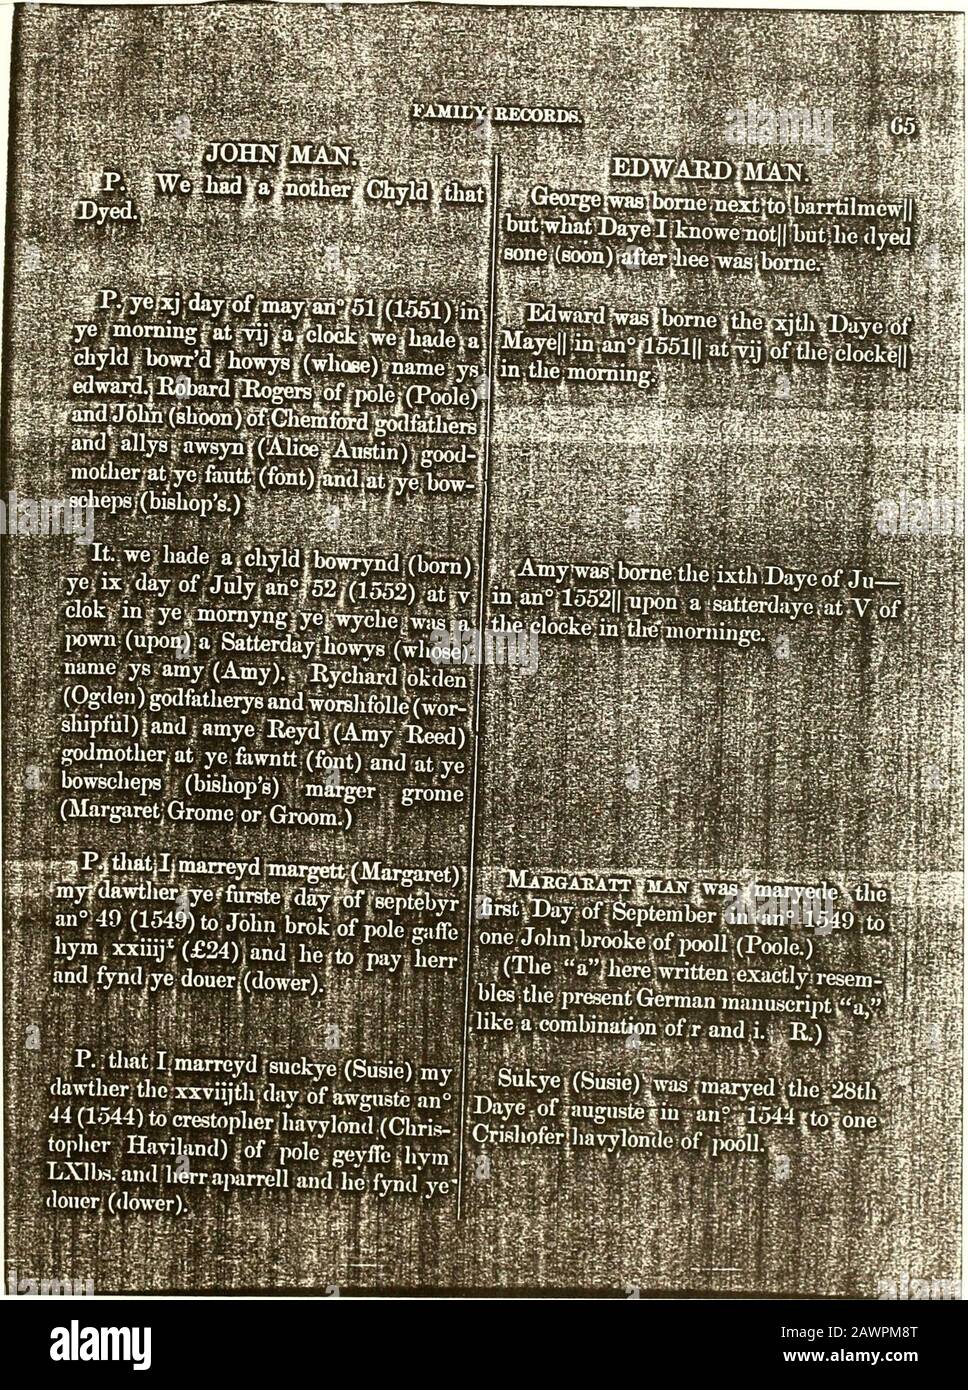 FAMILY RECORDS.
65
JOHN MAN.
P. We had a nother Chyld that
Dyed.
P. ye xj day of may an° 51 (1551) in
ye morning at vij a clock we hade a
chyld bowr'd howys (whose) name ys
edward. Robard Rogers of pole (Poole)
and John (shoon) of Chemford godfathers
and allys awsyn (Alice Austin) good-
mother at ye fautt (font) and at ye bow-
scheps (bishop's.)
It. we hade a chyld bowrynd (born)
ye ix day of July an° 52 (1552) at v
clok in ye mornyng ye wyche was a
pown (upon) a Satterday howys (whose)
name ys amy (Amy). Rychard okden
(Ogden) godfatherys and worshfolle (wor-
shipful) and amye Reyd (Amy Reed)
godmother at ye fawntt (font) and at ye
bowscheps (bishop's) marger grome
(Margaret Grome or Groom.)
P. that I marreyd margett (Margaret)
my dawther ye furste day of septebyr
an° 49 (1549) to John brok of pole gaffe
hym xxiiijᵗ (£24) and he to pay herr
and fynd ye douer (dower).
P. that I marreyd suckye (Susie) my
dawther the xxviijth day of awguste an°
44 (1544) to crestopher havylond (Chris-
topher Haviland) of pole geyffe hym
LXlbs. and herr aparrell and he fynd ye
douer (dower).
EDWARD MAN.
George was borne next to barrtilmew||
but what Daye I knowe not|| but he dyed
sone (soon) after hee was borne.
Edward was borne the xjth Daye of
Maye|| in an° 1551|| at vij of the clocke||
in the morning.
Amy was borne the ixth Daye of Ju—
in an° 1552|| upon a satterdaye at V of
the clocke in the morninge.
MARGARATT MAN was maryede the
first Day of September in an° 1549 to
one John brooke of pooll (Poole.)
(The "a" here written exactly resem-
bles the present German manuscript "a,"
like a combination of r and i. R.)
Sukye (Susie) was maryed the 28th
Daye of auguste in an° 1544 to one
Crishofer havylonde of pooll.
alamy
Image ID: 2AWPM8T
www.alamy.com